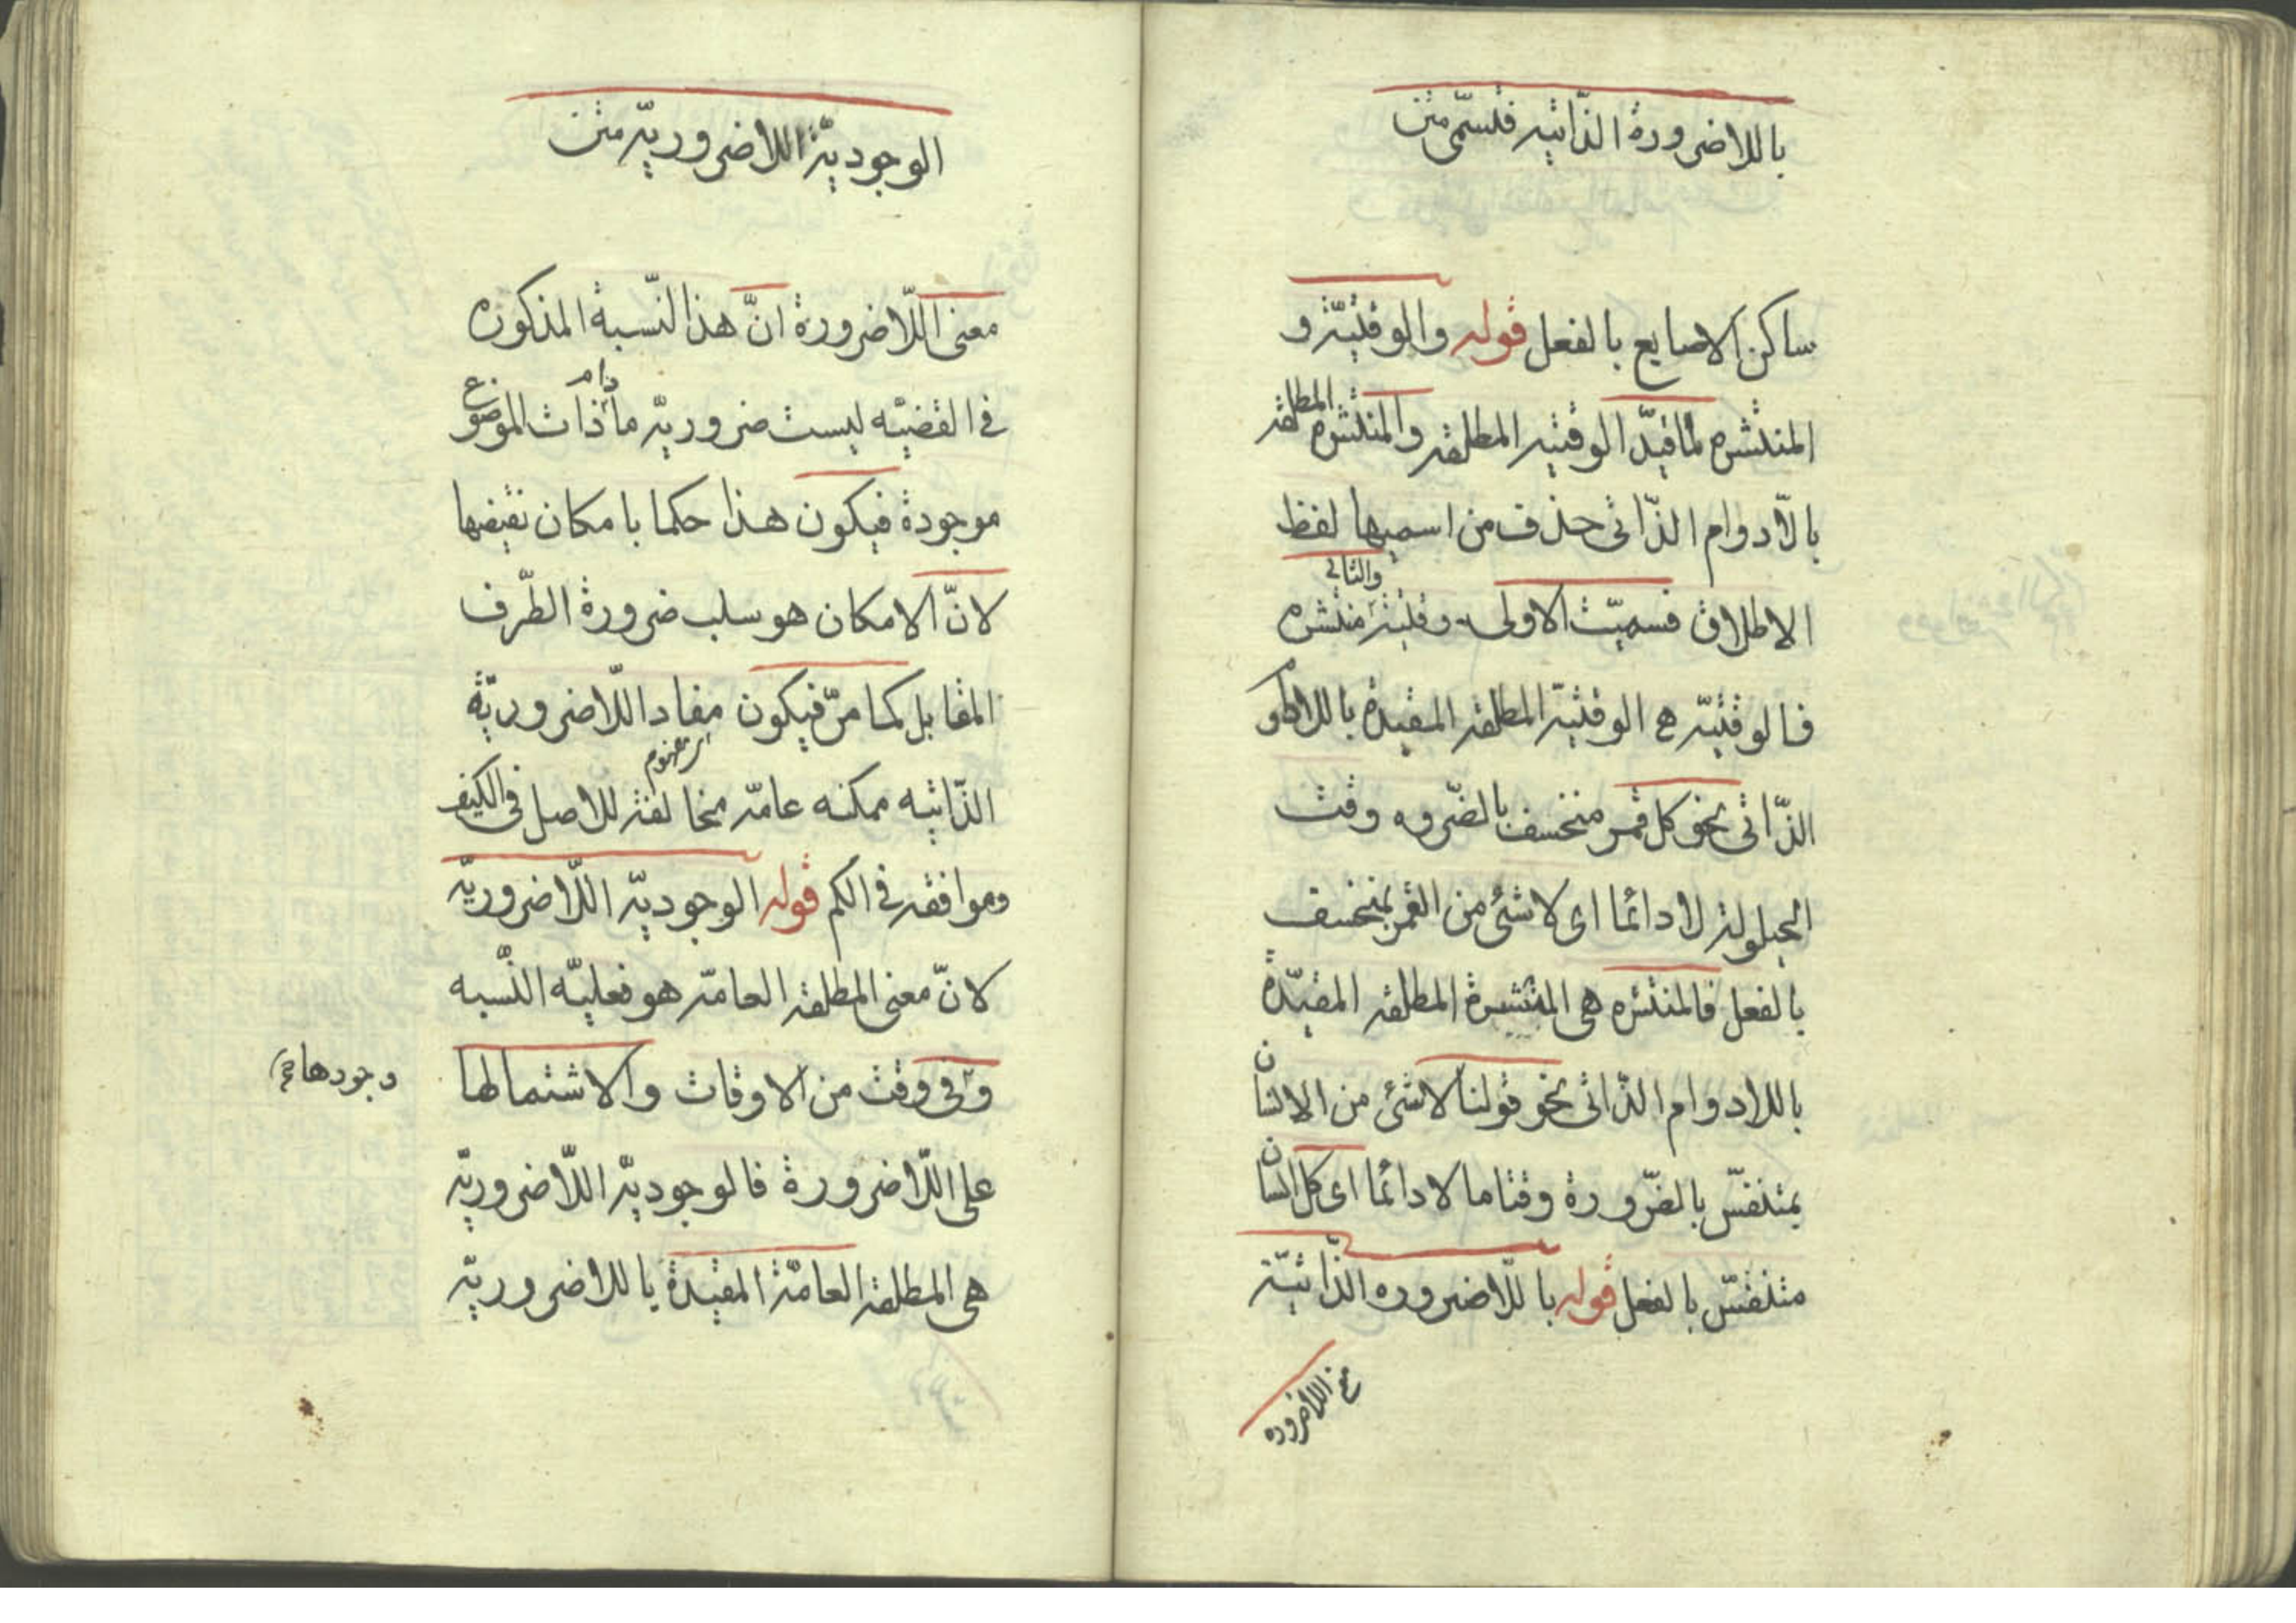 باللاضرورة الذاتیه فتسمّی متن
ساکن الاصابع بالفعل قوله والوقتیّة و
المنتشره لما قیدّ الوقتیه المطلقه والمنتشره المطلقه
بالّادوام الذّاتی حذف من اسمیها لفظ
الاطلاق فسمیّت الاولی وقتیة والثانی منتشره
فالوقتیّه هی الوقتیّة المطلقه المقیدة باللادوام
الذّاتی نحو کل قمر منخسف بالضّروه وقت
الحیلولة لا دائما ای لا شئ من القمر بمنخسف
بالفعل فالمنتشره هی المنتشرة المطلقه المقیدّة
باللادوام الذّاتی نحو قولنا لا شئ من الانسان
بمتنفسّ بالضّرورة وقتاما لا دائما ای کل انسان
متنفسّ بالفعل قوله باللّاضروره الذّاتیّة
معنی اللاضروره
الوجودیّة اللاضروریّه متن
معنی اللّاضرورة انّ هذا النّسبة المذکوره
فی القضیّه لیست ضروریّه مادام ذات الموضوع
موجودة فیکون هذا حکما بامکان نقیضها
لانّ الامکان هو سلب ضرورة الطّرف
المقابل کما مرّ فیکون مفاد اللّاضروریّة
الذّاتیه ممکنه عامّه مخالفة للاصل فی الکیف
وموافقه فی الکم قوله الوجودیّه اللّاضروریّه
لانّ معنی المطلقه العامّه هو فعلیّه النّسبه
وفی وقت من الاوقات والاشتمالها
وجودها
علی اللّاضرورة فالوجودیّه اللّاضروریّه
هی المطلقة العامّة المقیدة باللاضروریّه